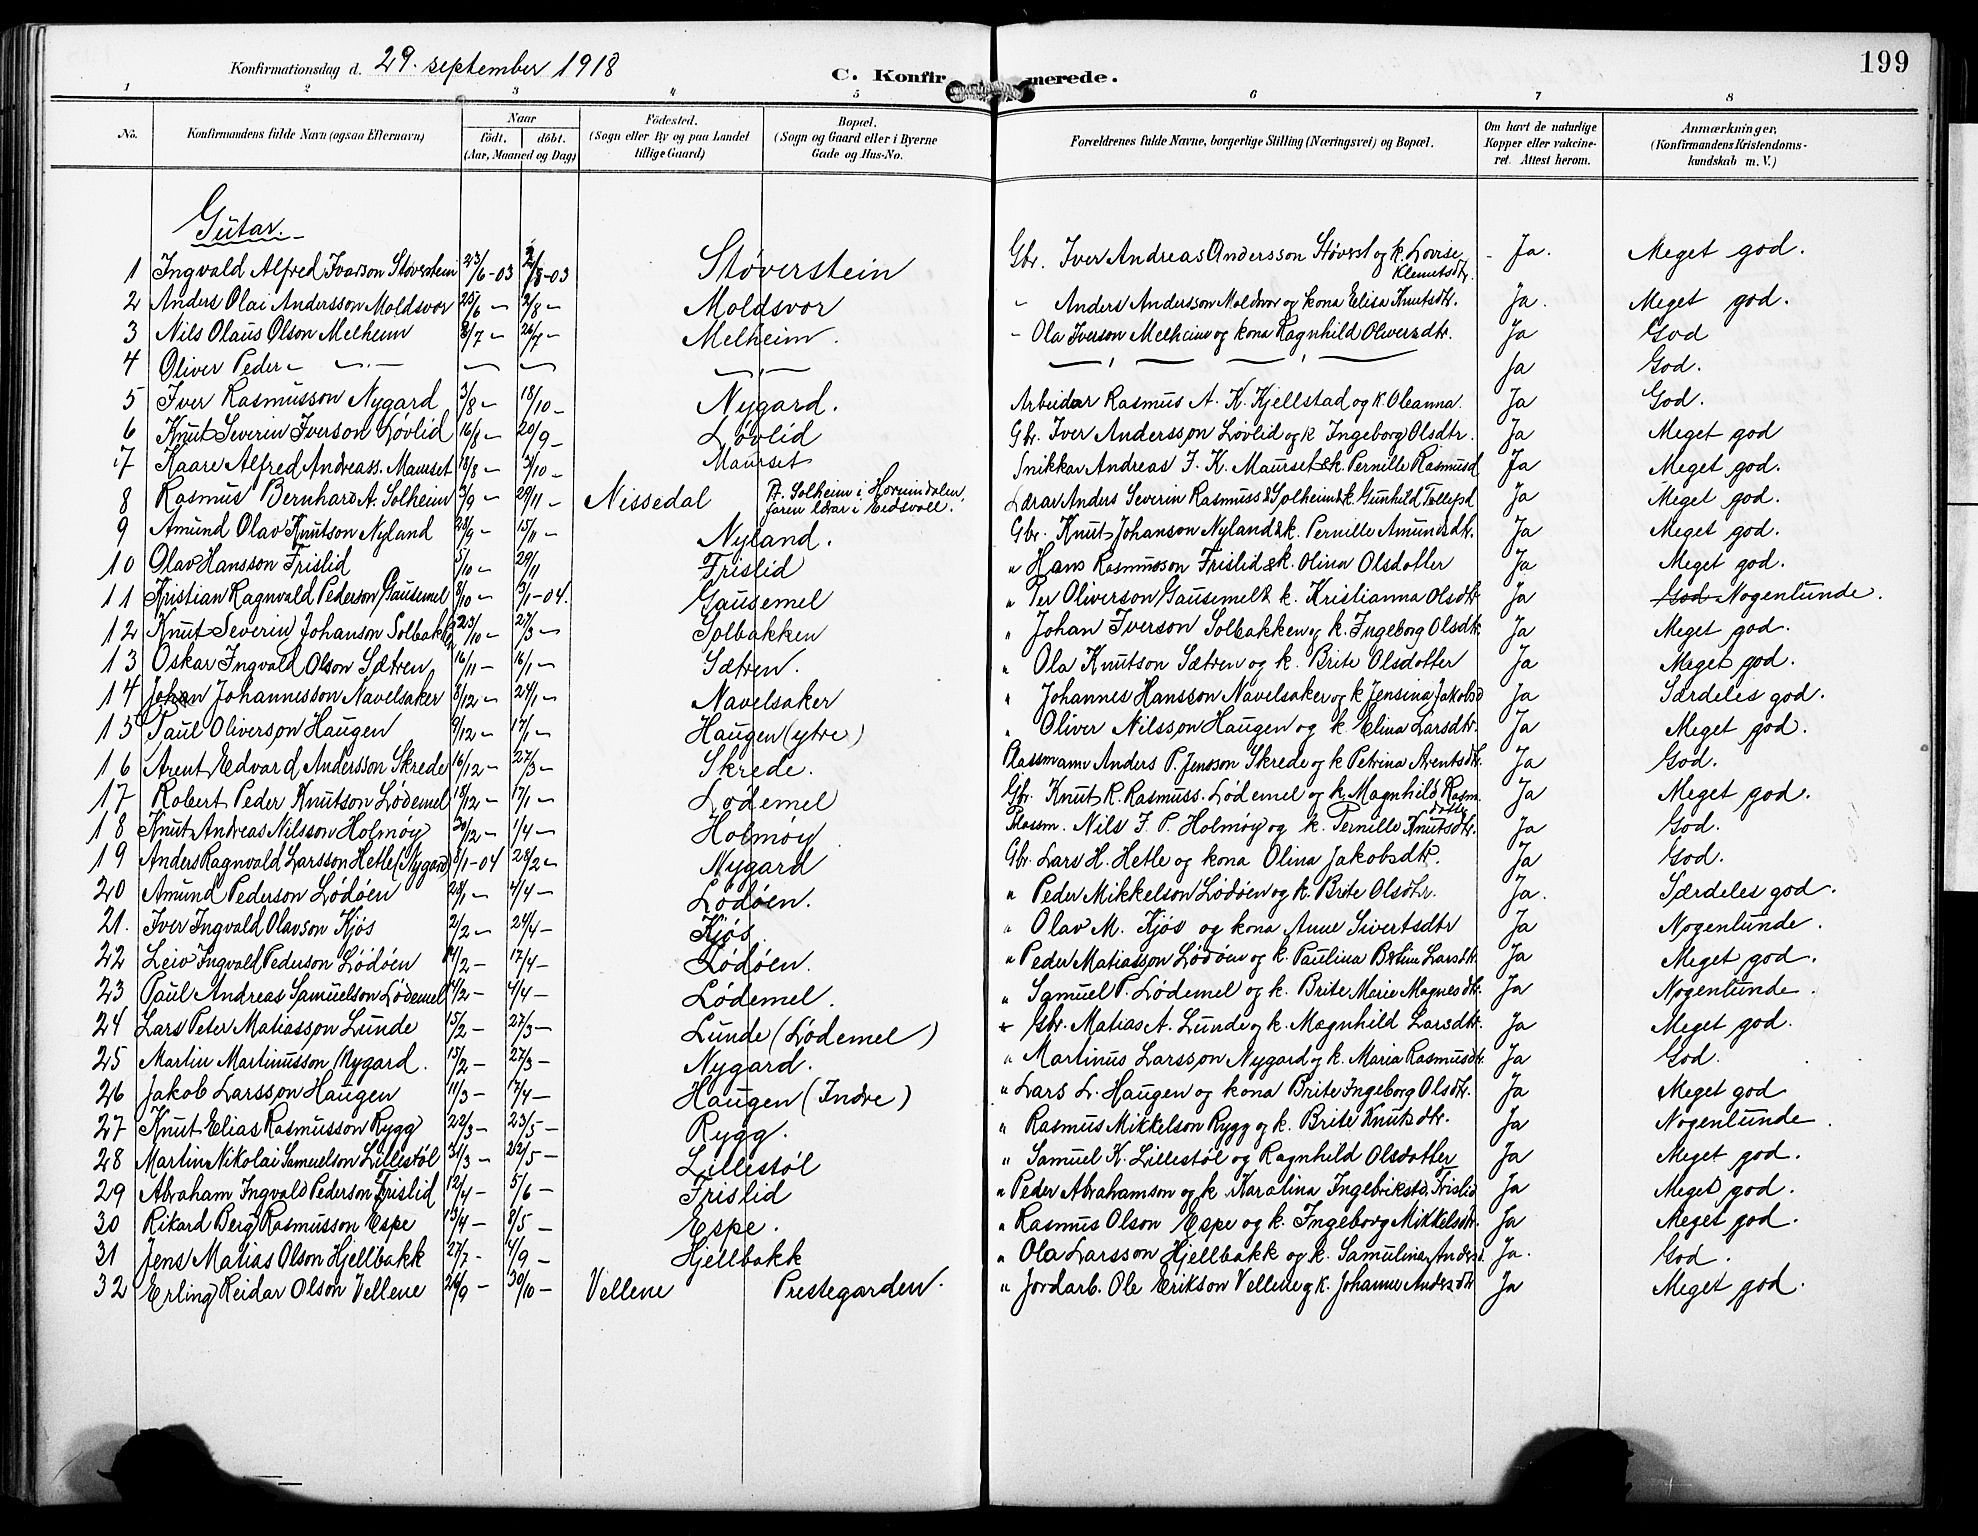 Konfirmationsdag d. 29. september 1918
C. Konfirmerede.
199
1 2 3 4 5 6 7 8
No. Konfirmandens fulde Navn (ogsaa Efternavn) Naar født, døbt. (Aar, Maaned og Dag) Fødested. (Sogn eller By og paa Landet tillige Gaard) Bopæl. (Sogn og Gaard eller i Byerne Gade og Hus-No. Forældrenes fulde Navne, borgerlige Stilling (Næringsvei) og Bopæl. Om havt de naturlige Kopper eller vakcineret. Attest herom. Anmærkninger, (Konfirmandens Kristendomskundskab m. V.)
Gutar.
1 Ingvald Alfred Ivarson Støverstein 23/6-03 2/8-03 Støverstein Gbr. Iver Andreas Andersson Støverst og k. Lovise Klemetsdtr. - Ja. Meget god.
2 Anders Olai Andersson Moldsvor 25/6 - 2/8 - Moldsvor " Anders Andersson Moldsvor og kona Elisa Knutsdtr. Ja. Meget god.
3 Nils Olaus Olson Melheim 8/7 - 26/7 - Melheim. - Ola Iverson Melheim og kona Ragnhild Oliversdtr. Ja God
4 Oliver Peder - - " - - - - " - - " - - " - Ja God.
5 Iver Rasmusson Nygard 3/8 - 18/10 - Nygard. Arbeidar Rasmus A. K. Kjellstad og k. Oleanna. Ja God.
6 Knut Severin Iverson Løvlid 16/8 - 20/9 - Løvlid Gbr. Iver Andersson Løvlid og k Ingeborg Olsdtr. Ja Meget god
7 Kaare Alfred Andreass. Maurset 18/8 - 3/10 - Maurset Snikkar Andreas J. K. Maurset & k. Pernille Rasmusd Ja Meget god.
8 Rasmus Bernhard A. Solheim 3/9 - 29/11 - Nissedal Pt. Solheim i Hornindalen, faren lærar i Eidsvoll. Lærar Anders Severin Rasmuss Solheim & k. Gunhild Tollefsd Ja Meget god.
9 Amund Olav Knutson Nyland 28/9 - 15/11 - Nyland. Gbr. Knut Johanson Nyland & k. Pernille Amundsdtr. Ja Meget god.
10 Olav Hansson Frislid 5/10 - 29/11 Frislid " Hans Rasmusson Frislid & k. Olina Olsdotter Ja Meget god.
11 Kristian Ragnvald Pederson Gausemel 8/10 - 3/1-04. Gausemel " Per Oliverson Gausemel & k. Kristianna Olsdtr Ja God Nogenlunde.
12 Knut Severin Johanson Solbakk 23/10 - 27/3 - Solbakken " Johan Iverson Solbakken og k. Ingeborg Olsdtr. Ja Meget god.
13 Oskar Ingvald Olson Sætren 16/11 - 16/1 - Sætren. " Ola Knutson Sætren og k. Brite Olsdotter Ja Meget god.
14 Johan Johannesson Navelsaker 8/12 - 24/1 - Navelsaker " Johannes Hansson Navelsaker og k Jensina Jakobsd Ja Særdeles god.
15 Paul Oliverson Haugen 9/12 - 17/1 - Haugen (ytre) " Oliver Nilsson Haugen og k Elina Larsdtr. Ja Meget god.
16 Arent Edvard Andersson Skrede 16/12 - 27/3 - Skrede. Plassmann Anders P. Jensson Skrede og k Petrina Arentsdtr. Ja God.
17 Robert Peder Knutson Lødemel 18/12 - 17/1 - Lødemel Gbr. Knut R. Rasmuss. Lødemel og k. Magnhild Rasm. dotter Ja Meget god.
18 Knut Andreas Nilsson Holmøy 30/12 - 1/4 - Holmøy Plassm. Nils J. P. Holmøy og k. Pernille Knutsdtr. Ja God.
19 Anders Ragnvald Larsson Hetle (Nygard) 8/1-04 28/2 - Nygard Gbr. Lars H. Hetle og kona Olina Jakobsdtr. Ja God.
20 Amund Pederson Lødøen 28/1 - 4/4 - Lødøen. " Peder Mikkelson Lødøen og k. Brite Olsdtr. Ja. Særdeles god.
21. Iver Ingvald Olavson Kjøs 2/2 - 24/4 - Kjøs " Olav M. Kjøs og kona Anne Sivertsdtr Ja Nogenlunde.
22 Leiv Ingvald Pederson Lødøen 14/2 - 17/4 - Lødøen. " Peder Matiasson Lødøen og k. Paulina Bertine Larsdtr Ja Meget god.
23 Paul Andreas Samuelson Lødemel 4/2 - 4/4 - Lødemel. " Samuel P. Lødemel og k. Brite Marie Magnesdtr. Ja Nogenlunde.
24 Lars Peter Matiasson Lunde 15/2 - 27/3 - Lunde (Lødemel) Gbr. Matias A. Lunde og k. Magnhild Larsdtr. Ja Meget god.
25 Martin Martinusson Nygard. 15/2 - 27/3 - Nygard. " Martinus Larsson Nygard og k. Maria Rasmusdtr. Ja God.
26 Jakob Larsson Haugen 11/3 - 17/4 - Haugen (Indre) " Lars L. Haugen og kona Brite Ingeborg Olsdtr. Ja Meget god
27 Knut Elias Rasmusson Rygg 22/3 - 23/5 - Rygg. " Rasmus Mikkelson Rygg og k. Brite Knutsdtr. Ja Nogenlunde.
28 Martin Nikolai Samuelson Lillestøl 31/3 - 22/5 - Lillestøl " Samuel K. Lillestøl og Ragnhild Olsdotter Ja Meget god.
29 Abraham Ingvald Pederson Frislid 12/4 - 5/6 - Frislid " Peder Abrahamson og k. Karolina Ingebriktsd. Frislid Ja Meget god.
30 Rikard Berg Rasmusson Espe 13/4 - 8/5 - Espe. " Rasmus Olson Espe og k. Ingeborg Mikkelsdtr. Ja Meget god.
31 Jens Matias Olson Hjellbakk 27/7 - 4/9 - Hjellbakk " Ola Larsson Hjellbakk og k. Samuline Anders. Ja. God.
32 Erling Reidar Olson Vellene 26/9 - 30/10 - Vellene Prestegarden. " Jordarb. Ole Erikson Vellene og k. Johanne Andersdtr Ja Meget god.